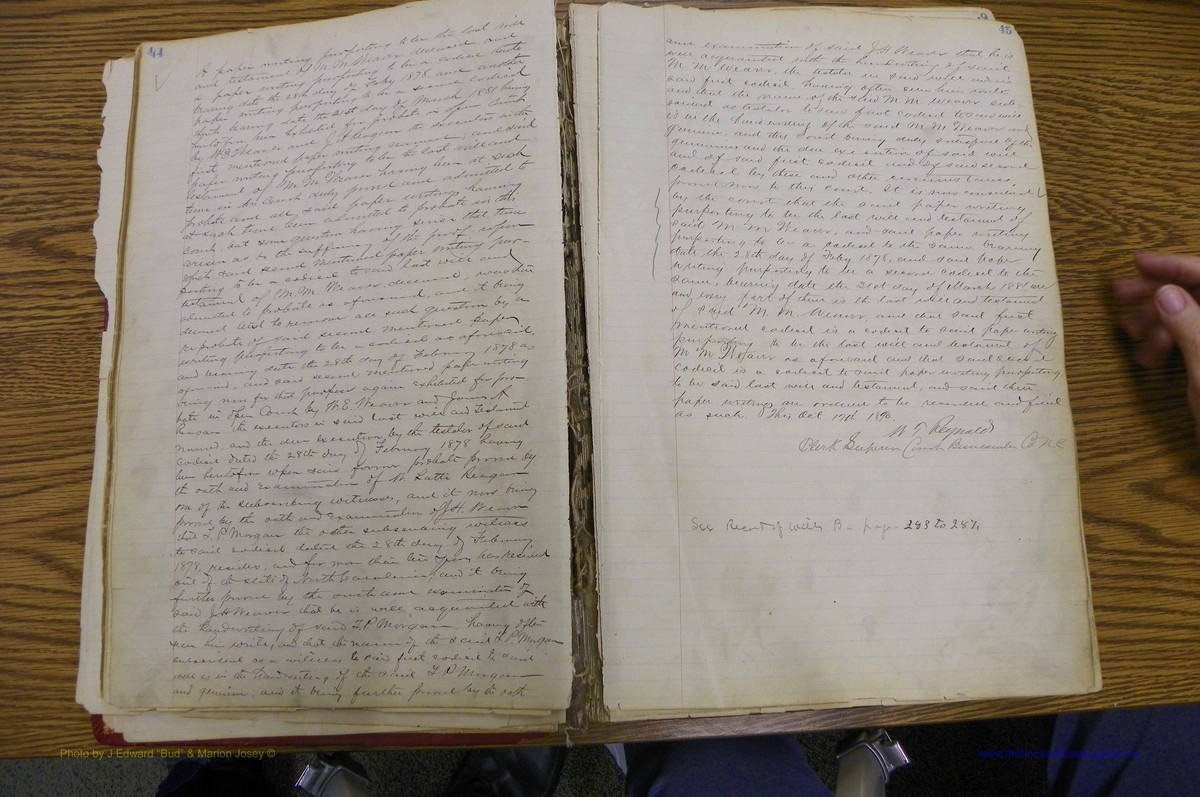 44
A paper writing purporting to be the last will
and testament of M. M. Weaver deceased and
a paper writing purporting to be a codicil thereto
bearing date the 28th day of Feby 1878 and another
paper writing purporting to be a second codicil
thereto bearing date the 21st day of March 1881 having
heretofore been exhibited for probate in open Court
by W E Weaver and J. A. Reagan the executors in the
first mentioned paper writing named, and said
paper writing purporting to be the last will and
testament of M. M. Weaver having been at such
time in open Court duly proved and admitted to
probate and all said paper writings having
at such time been admitted to probate in this
Court and some question having since that time
arisen as to the sufficiency of the proof upon
which said second mentioned paper writing pur-
porting to be a codicil to said last will and
testament of M. M. Weaver, deceased, was then
admitted to probate as aforesaid, and it being
desired to remove all such question by a
re probate of said second mentioned paper
writing purporting to be a codicil as aforesaid,
and bearing date the 28th day of February 1878 as
aforesaid, and said second mentioned paper writing
being now for that purpose again exhibited for pro-
bate in open Court by W. E. Weaver and James A
Reagan the executors in said last will and testament
named, and the due execution by the testator of said
codicil dated the 28th day of February 1878 having
been heretofore upon said former probate proved by
the oath and examination of W. Latta Reagan
one of the subscribing witnesses, and it now being
proved by the oath and examination of J. H. Weaver
that L. P Morgan the other subscribing witness
to said codicil dated the 28th day of February
1878, resides, and for more than two years has resided
out of the State of North Carolina, and it being
further proved by the oath and examination of
said J. H Weaver that he is well acquainted with
the handwriting of said L. P. Morgan having often
seen him write, and that the name of the said L. P. Morgan
subscribed as a witness to said first codicil to said
will is in the handwriting of the said L. P Morgan
and genuine; and it being further proved by the oath
9
45
and examination of said J H Weaver that he is
well acquainted with the handwriting of said
M M Weaver, the testator in said will and in
said first codicil, having often seen him write
and that the name of the said M M Weaver sub-
scribed as testator to said first codicil to said will
is in the handwriting of the said M. M. Weaver and
genuine, and this Court being duly satisfied of the
genuineness and the due execution of said will
and of said first codicil and of said second
codicil by these and other circumstances
proved now to this Court. It is now considered
by the Court that the said paper writing
purporting to be the last will and testament of
said M. M. Weaver, and said paper writing
purporting to be a codicil to the same bearing
date the 28th day of Feby 1878, and said paper
writing purporting to be a second codicil to the
same, bearing date the 21st day of March 1881 are
and every part of them is the last will and testament
of said M. M. Weaver and that said first
mentioned codicil is a codicil to said paper writing
purporting to be the last will and testament of
M M Weaver as aforesaid and that said second
codicil is a codicil to said paper writing purporting
to be said last will and testament, and said three
paper writings are ordered to be recorded and filed
as such. This Oct 17th
W T Reynolds
Clerk Superior Court Buncombe Co NC
See Record of Wills B - page 283 to 287
Photo by J Edward "Bud" & Marion Josey ©